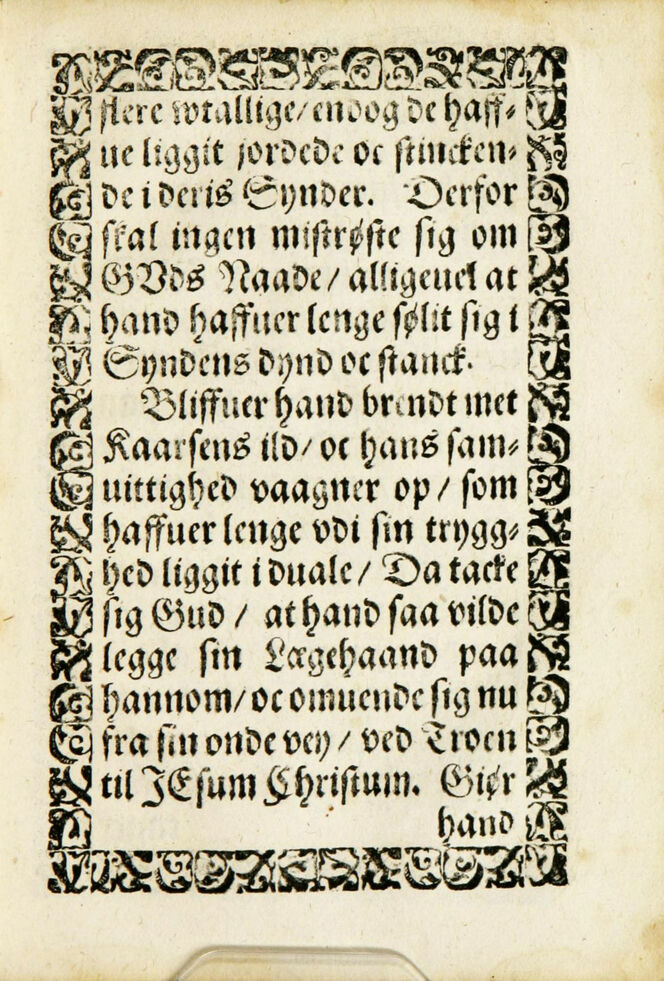 flere wtallige/ endog de haff⸗
ue liggit jordede oc stincken⸗
de i deris Synder. Derfor
skal ingen mistrøste sig om
GVds Naade/ alligeuel at
hand haffuer lenge sølit sig i
Syndens dynd oc stanck.
Bliffuer hand brendt met
Kaarsens ild/ oc hans sam⸗
uittighed vaagner op/ som
haffuer lenge vdi sin trygg⸗
hed liggit i duale/ Da tacke
sig Gud/ at hand saa vilde
legge sin Lægehaand paa
hannom/ oc omuende sig nu
fra sin onde vey/ ved Troen
til JEsum Christum. Giør
hand